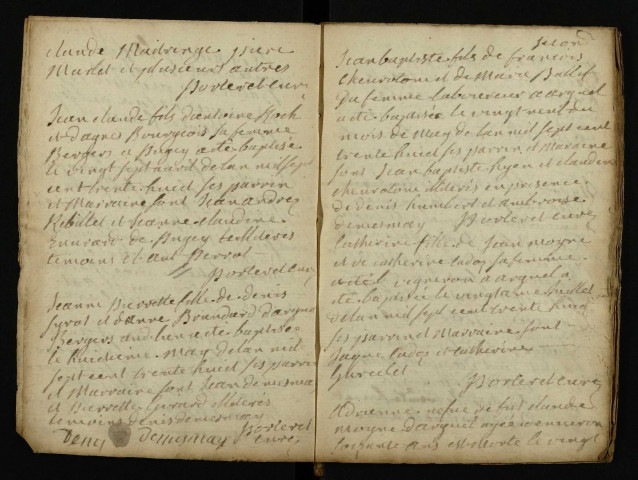 claude Maitringe pierre
Marlet et plusieurs autres
Borleret curé
Jean claude fils d'antoine
et d'agne Bourgeois sa femme
Bergers a Bugey a eté baptisé
le vingt sept avril de lan mil sept
cent trente huict ses parrin
et Marraine sont Jean andre
Robillet et Jeanne claudine
de Bugey illiteres
temoins et ant perrot
Borleret curé
Jeanne pierrette fille de denis
et d'anne d'arguel
bergers a eté baptisé
le huictieme May de lan mil
sept cent trente huict ses parrin
et Marraine sont Jean demesmay
et pierrette Girard illiteres
temoins denis demesmay
Deny Demesmay Borleret
curé
Jean baptiste fils de francois
et de Marie Ballif
sa femme laboureur a arguel
a eté baptisé le vingt neuf du
mois de May de lan mil sept cent
trente huict ses parrin et Maraine
sont Jean baptiste et claudine
illiteres en presence
de denis humbert et ambroise
demesmay Borleret curé
Catherine fille de Jean moyne
et de catherine sa femme
vigneron a arguel a
eté baptisée le vingtieme Juillet
de lan mil sept cent trente huict
ses parrin et Marraine sont
et catherine
Borleret curé
Adrienne vefve de fut claude
moyne d'arguel agee d environ
soixante ans est morte le vingt